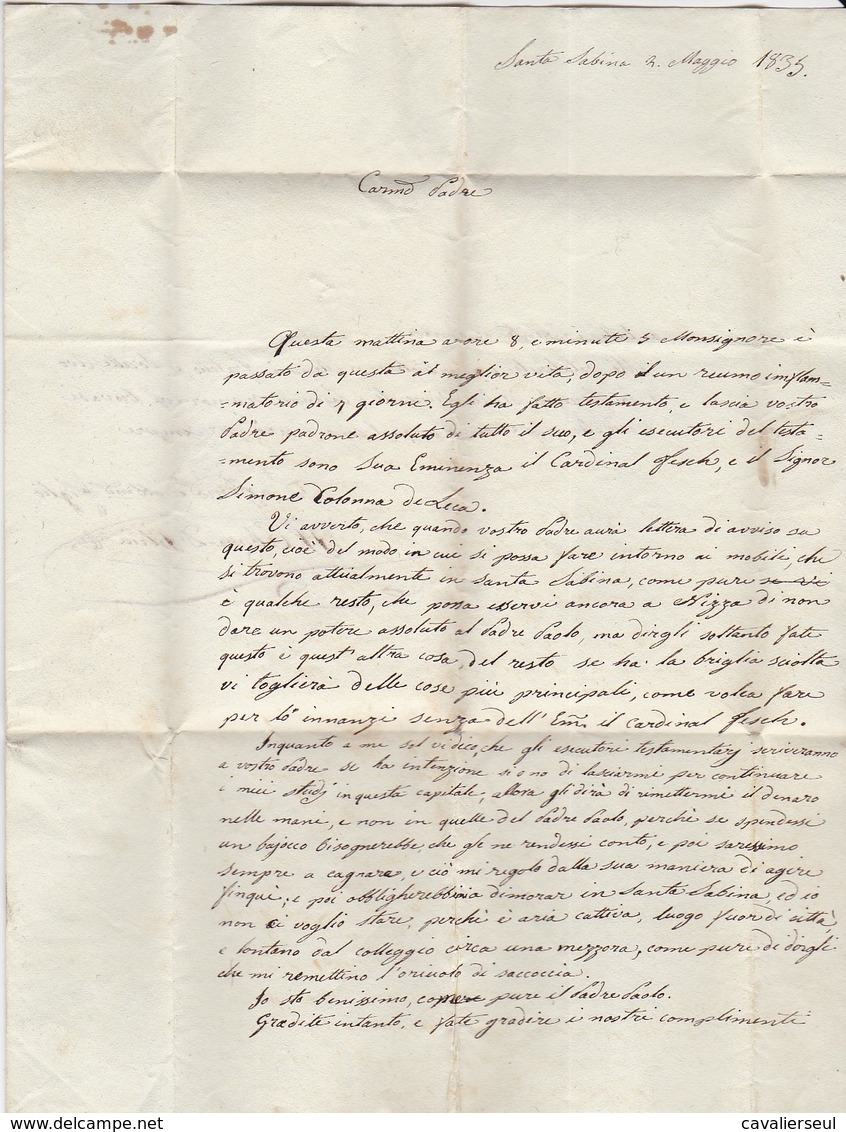 Santa Sabina 2. Maggio 1835.
Carmo Padre
Questa mattina a ore 8, e minuti 5 Monsignore è
passato da questa a miglior vita, dopo un reumo imflam=
=matorio di 7 giorni. Egli ha fatto testamento, e lascia vostro
Padre padrone assoluto di tutto il suo, e gli esecutori del testa=
=mento sono Sua Eminenza il Cardinal Fesch, e il Signor
Simone Colonna de Leca.
Vi avverto, che quando vostro Padre aurà lettera di avviso su
questo, cioè del modo in cui si possa fare intorno ai mobili, che
si trovono attualmente in Santa Sabina, come pure se vi
è qualche resto, che possa esservi ancora a Nizza di non
dare un potere assoluto al Padre Paolo, ma dirgli soltanto fate
questo è quest'altra cosa, del resto se ha la briglia sciolta
vi toglierà delle cose più principali, come volea fare
per lo innanzi senza dell'Em. il Cardinal Fesch.
Inquanto a me sol vi dico, che gli esecutori testamentarj scriveranno
a vostro Padre se ha intenzione si o no di lasciarmi per continuare
i miei studj in questa capitale, allora gli dirà di rimettermi il denaro
nelle mani, e non in quelle del Padre Paolo, perchè se spendessi
un bajocco bisognerebbe, che glie ne rendessi conto, e poi saressimo
sempre a cagnara, e ciò mi regolo dalla sua maniera di agire
finquì; e poi obbligherebbimi a dimorar in Santa Sabina, ed io
non ci voglio stare, perchè è aria cattiva, luogo fuor di città,
e lontano dal colleggio circa una mezzora, come pure di dirgli
che mi remettino l'oriuolo di saccoccia.
Io sto benissimo, come pure il Padre Paolo.
Gradite intanto, e fate gradire i nostri complimenti
delcampe.net
cavalierseul